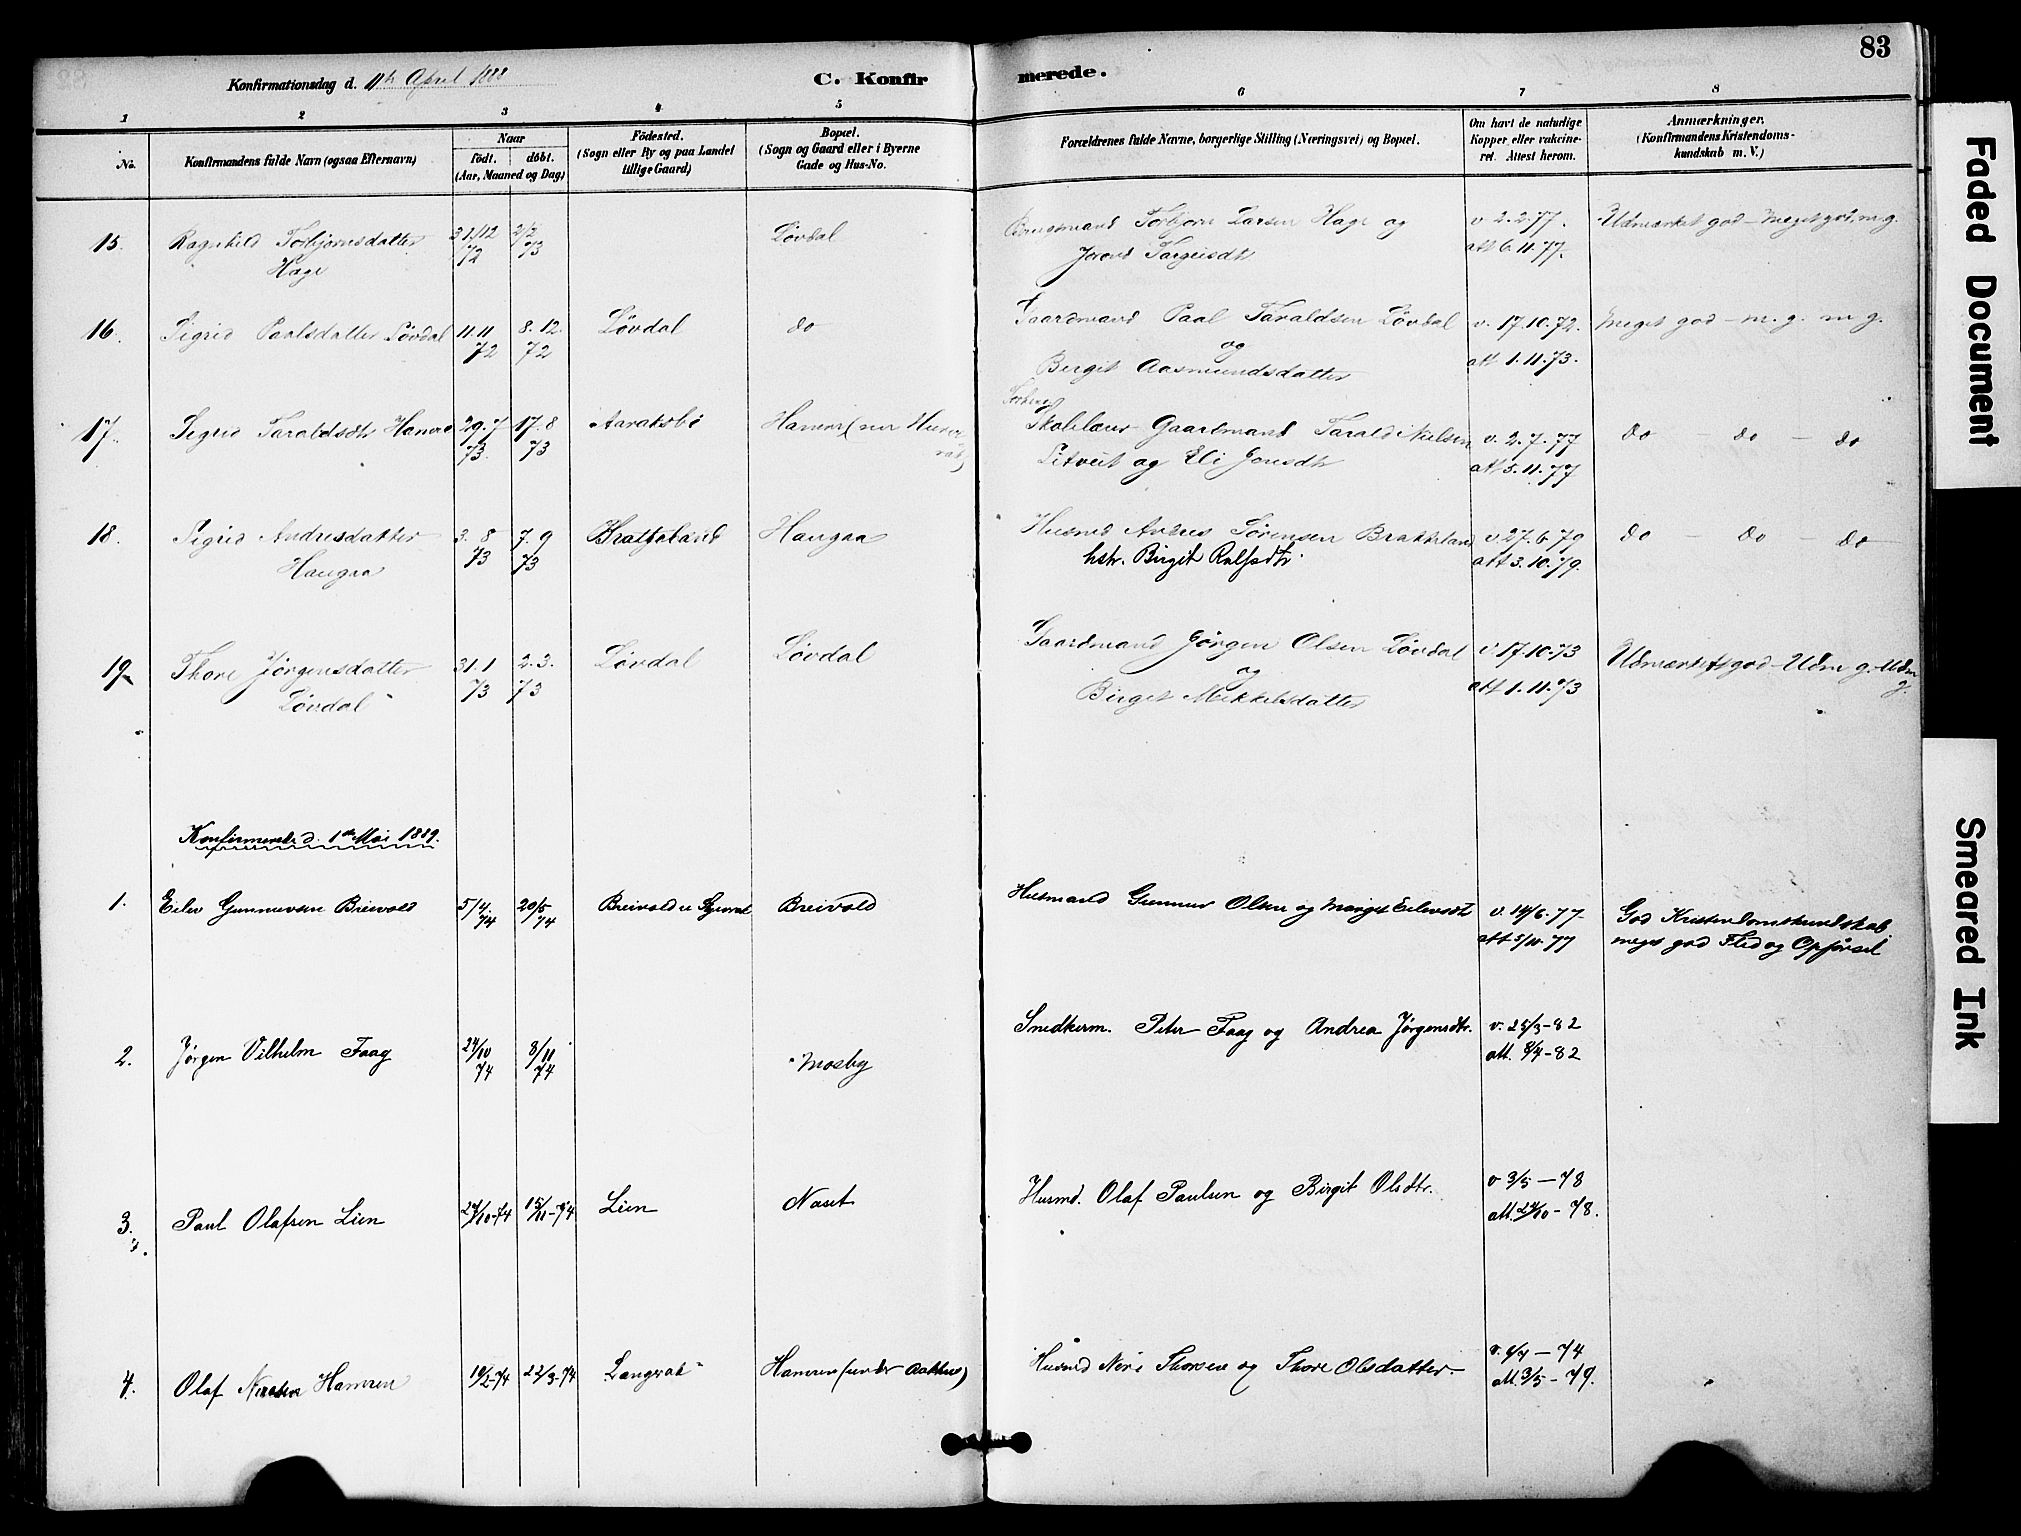 83
Konfirmationsdag d. 11te April 1888
C. Konfirmerede.
1 2 3 4 5 6 7 8
No.
Konfirmandens fulde Navn (ogsaa Efternavn)
Naar
födt. döbt.
(Aar, Maaned og Dag)
Födested.
(Sogn eller By og paa Landet
tillige Gaard)
Bopæl.
(Sogn og Gaard eller i Byerne
Gade og Hus-No.
Forældrenes fulde Navne, borgerlige Stilling (Næringsvei) og Bopæl.
Om havt de naturlige
Kopper eller vakcine-
ret. Attest herom.
Anmærkninger.
(Konfirmandens Kristendoms-
kundskab m. V.)
15. Ragnhild Torbjørnsdatter 31/12 2/2 Løvdal Brugsmand Torbjørn Larsen Hage og v 2.2.77. Udmærket god - Meget god, m. g.
Hage 72 73 Jorand Targeisdtr att 6.11.77.
16. Sigrid Paalsdatter Løvdal 11.11 8.12. Løvdal do Gaardmand Paal Taraldsen Løvdal v. 17.10.72. Meget god - m. g. m g.
72 72 og
Birgit Aasmundsdatter att 1.11.73.
17. Sigrid Taraldsdtr Hanen 29.7 17.8 Aaraksbø Gaardmand Tarald Nilsen v. 2.7.77 do - do - do
73. 73 og Eli Jonsdtr att 5.11.77
18. Sigrid Andresdatter 3.8 7.9 Haugaa Husmd Andres Sørensen Brakkeland v 27.6.79 do - do - do
Haugaa 73 73 hstr. Birgit Rolfsdtr. att 3.10.79.
19 Thore Jørgensdatter 31.1 2.3. Løvdal Løvdal Gaardmand Jørgen Olsen Løvdal v. 17.10.73 Udmærket god - Udm g. - Udm
Løvdal 73 73 og g.
Birgit Mikkelsdatter att 1.11.73
Konfirmerede d. 1ste Mai 1889.
1. Eilev Gunnuvsen Breivold 5/4 20/5 Breivold Breivold Husmand Gunnuv Olsen og Margit Eilevsdt v. 14/6.77- God Kristendomskundskab
74 74 att 5/11.77 meget god Flid og Opførsel
2. Jørgen Vilhelm Faag 24/10 8/11 Mosby Snedkerm. Peter Faag og Andrea Jørgensdtr. v. 25/3-82
74 74 att. 8/4-82
3. Paul Olafsen Lien 24/10-74 15/11-74 Lien Naset Husmd. Olaf Paulsen og Birgit Olsdtr. v 3/5-78
att. 24/10-78.
4. Olaf Hamren 19/2-74 22/3-74 Langerak Hamren (under Aakhus) Husmd Neri Thorsen og Thore Olsdatter. v. 9/4-74
att. 3/5-79.
Faded Document
Smeared Ink